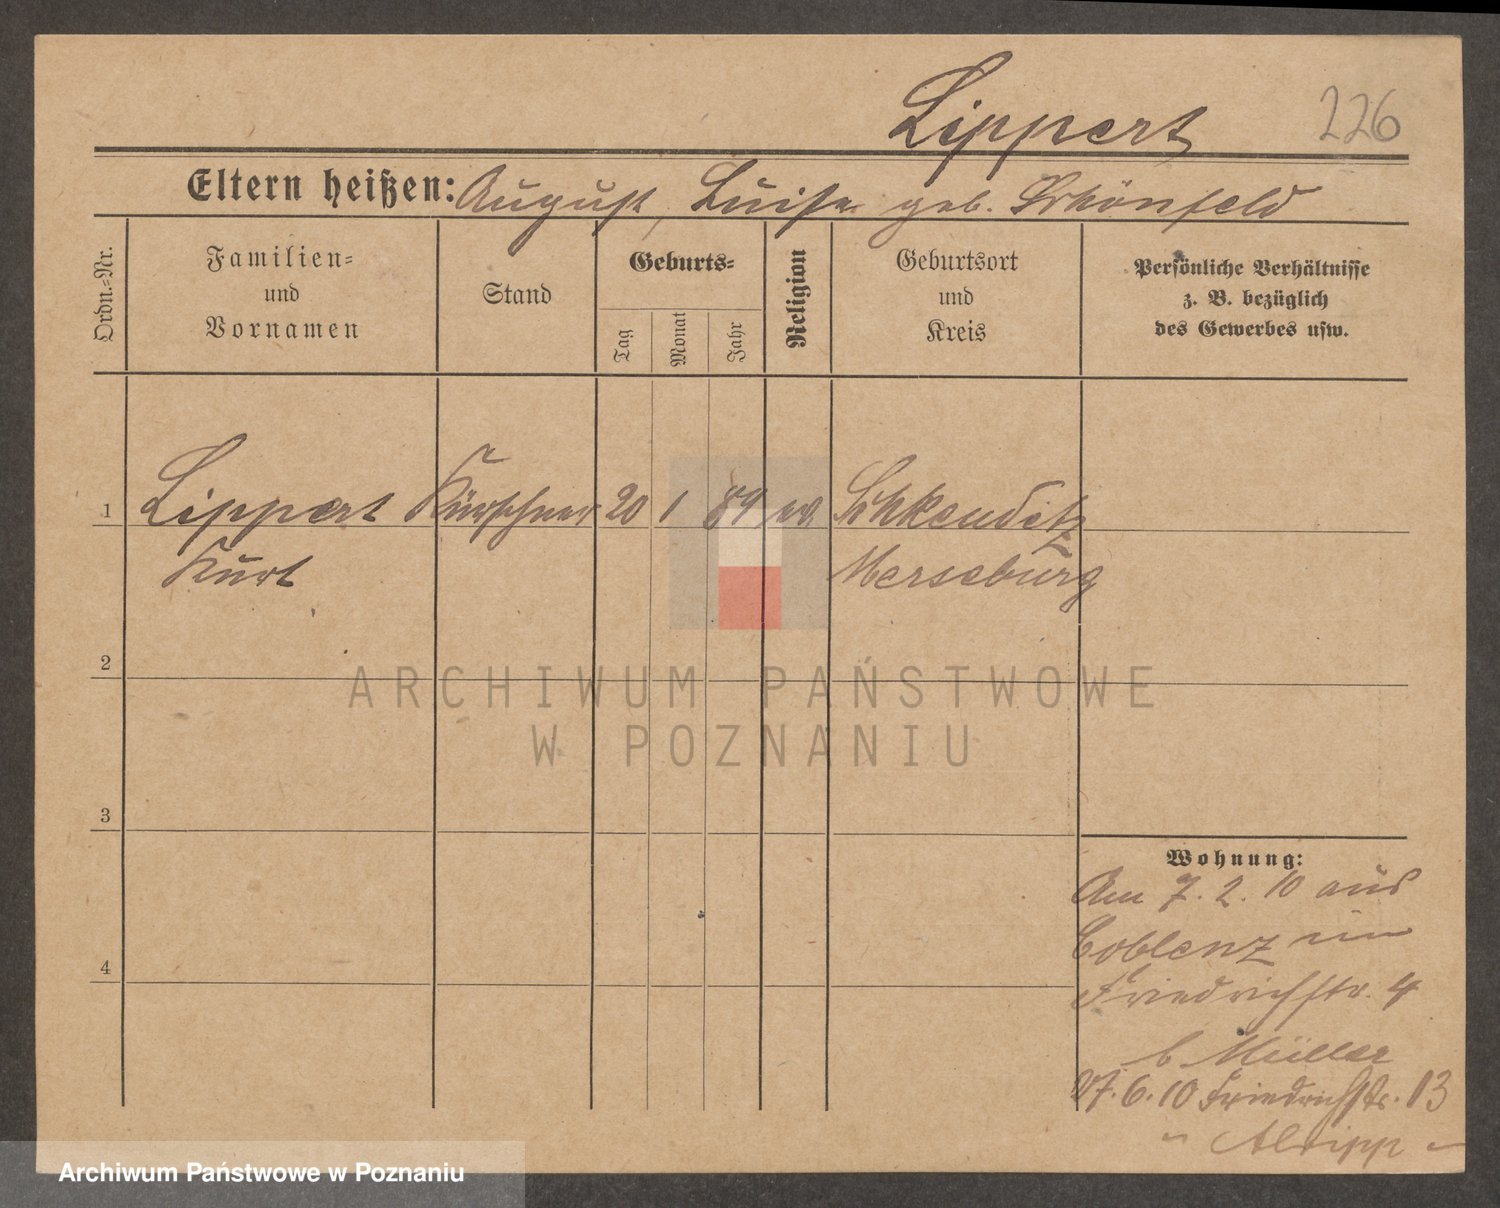 Lippert 226
Eltern heißen: August, Luise geb. Schönfeld
Ordn.-Nr.
Familien-
und
Vornamen
Stand
Geburts-
Tag
Monat
Jahr
Religion
Geburtsort
und
Kreis
Persönliche Verhältnisse
z. B. bezüglich
des Gewerbes usw.
1 Lippert Kürschner 20 1 89 ev. Schkeuditz
Kurt Merseburg
2
3
4
ARCHIWUM PAŃSTWOWE
W POZNANIU
Wohnung:
Am 7. 2. 10 aus
Coblenz in
Friedrichstr. 4
b Müller
27. 6. 10 Friedrichstr. 13
Archiwum Państwowe w Poznaniu